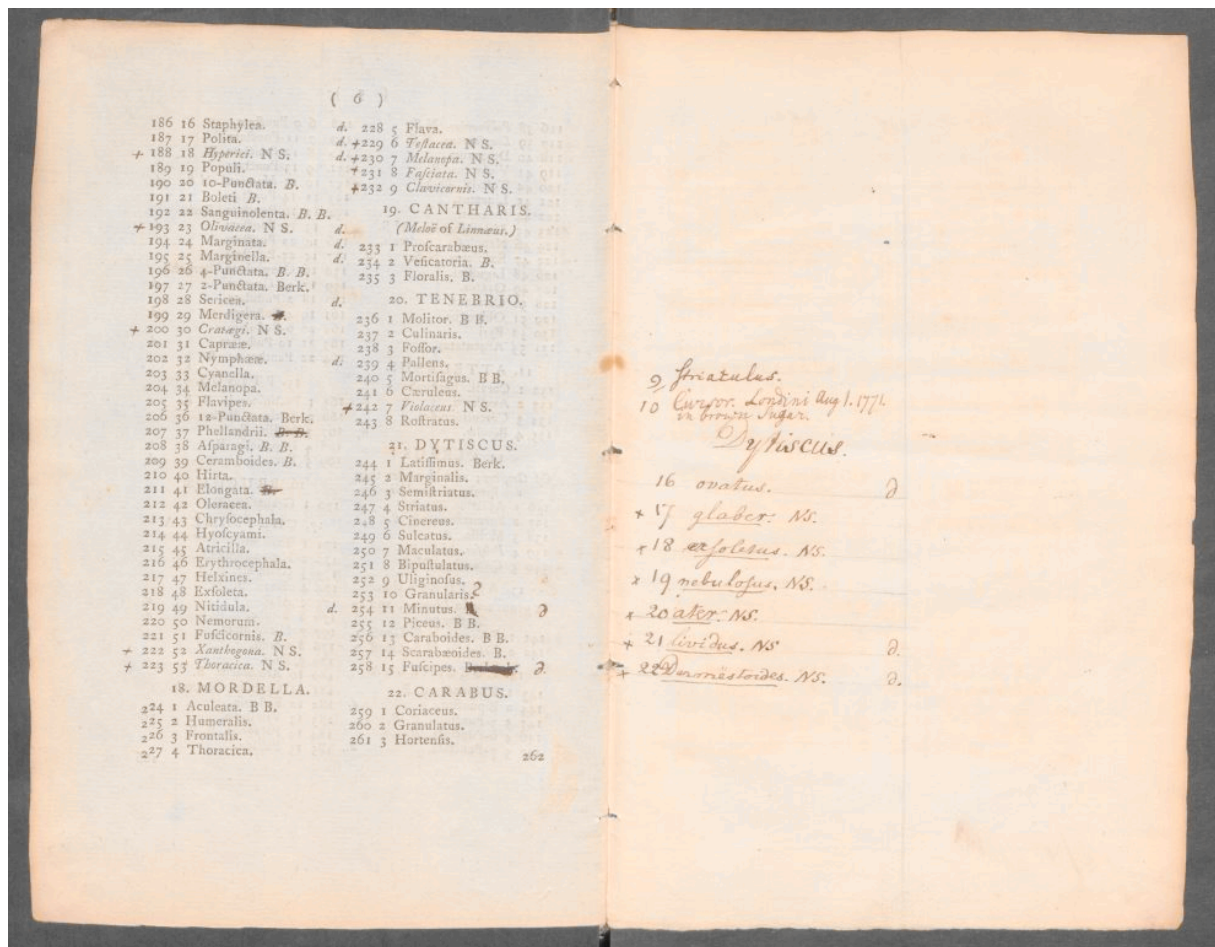 ( 6 )
186 16 Staphylea.
187 17 Polita.
+ 188 18 Hyperici. N S.
189 19 Populi.
190 20 10-Punctata. B.
191 21 Boleti B.
192 22 Sanguinolenta. B. B.
+ 193 23 Olivacea. N S.
194 24 Marginata.
195 25 Marginella.
196 26 4-Punctata. B. B.
197 27 2-Punctata. Berk.
198 28 Sericea.
199 29 Merdigera.
+ 200 30 Cratægi. N S.
201 31 Caprææ.
202 32 Nymphææ.
203 33 Cyanella.
204 34 Melanopa.
205 35 Flavipes.
206 36 12-Punctata. Berk.
207 37 Phellandrii. B. B.
208 38 Asparagi. B. B.
209 39 Ceramboides. B.
210 40 Hirta.
211 41 Elongata.
212 42 Oleracea.
213 43 Chrysocephala.
214 44 Hyoscyami.
215 45 Atricilla.
216 46 Erythrocephala.
217 47 Helxines.
218 48 Exsoleta.
219 49 Nitidula.
220 50 Nemorum.
221 51 Fuscicornis. B.
+ 222 52 Xanthogona. N S.
+ 223 53 Thoracica. N S.
18. MORDELLA.
224 1 Aculeata. B B.
225 2 Humeralis.
226 3 Frontalis.
227 4 Thoracica.
d. 228 5 Flava.
d. +229 6 Testacea. N S.
d. +230 7 Melanopa. N S.
+231 8 Fasciata. N S.
+232 9 Clavicornis. N S.
19. CANTHARIS.
d. (Meloë of Linnæus.)
d. 233 1 Proscarabæus.
d. 234 2 Vesicatoria. B.
235 3 Floralis. B.
d. 20. TENEBRIO.
236 1 Molitor. B B.
237 2 Culinaris.
238 3 Fossor.
d. 239 4 Pallens.
240 5 Mortisagus. B B.
241 6 Cæruleus.
+242 7 Violaceus N S.
243 8 Rostratus.
21. DYTISCUS.
244 1 Latissimus. Berk.
245 2 Marginalis.
246 3 Semistriatus.
247 4 Striatus.
248 5 Cinereus.
249 6 Sulcatus.
250 7 Maculatus.
251 8 Bipustulatus.
252 9 Uliginosus.
253 10 Granularis.
d. 254 11 Minutus. ∂
255 12 Piceus. B B.
256 13 Caraboides. B B.
257 14 Scarabæoides. B.
258 15 Fuscipes. ∂.
22. CARABUS.
259 1 Coriaceus.
260 2 Granulatus.
261 3 Hortensis.
262
9 Striatulus.
10 Cursor. Londini Aug 1. 1771.
in brown Sugar.
Dytiscus.
16 ovatus. ∂
× 17 glaber. NS.
× 18 exsoletus. NS.
× 19 nebulosus. NS.
× 20 ater. NS.
+ 21 lividus. NS ∂.
+ 22 Dermestoides. NS. ∂.